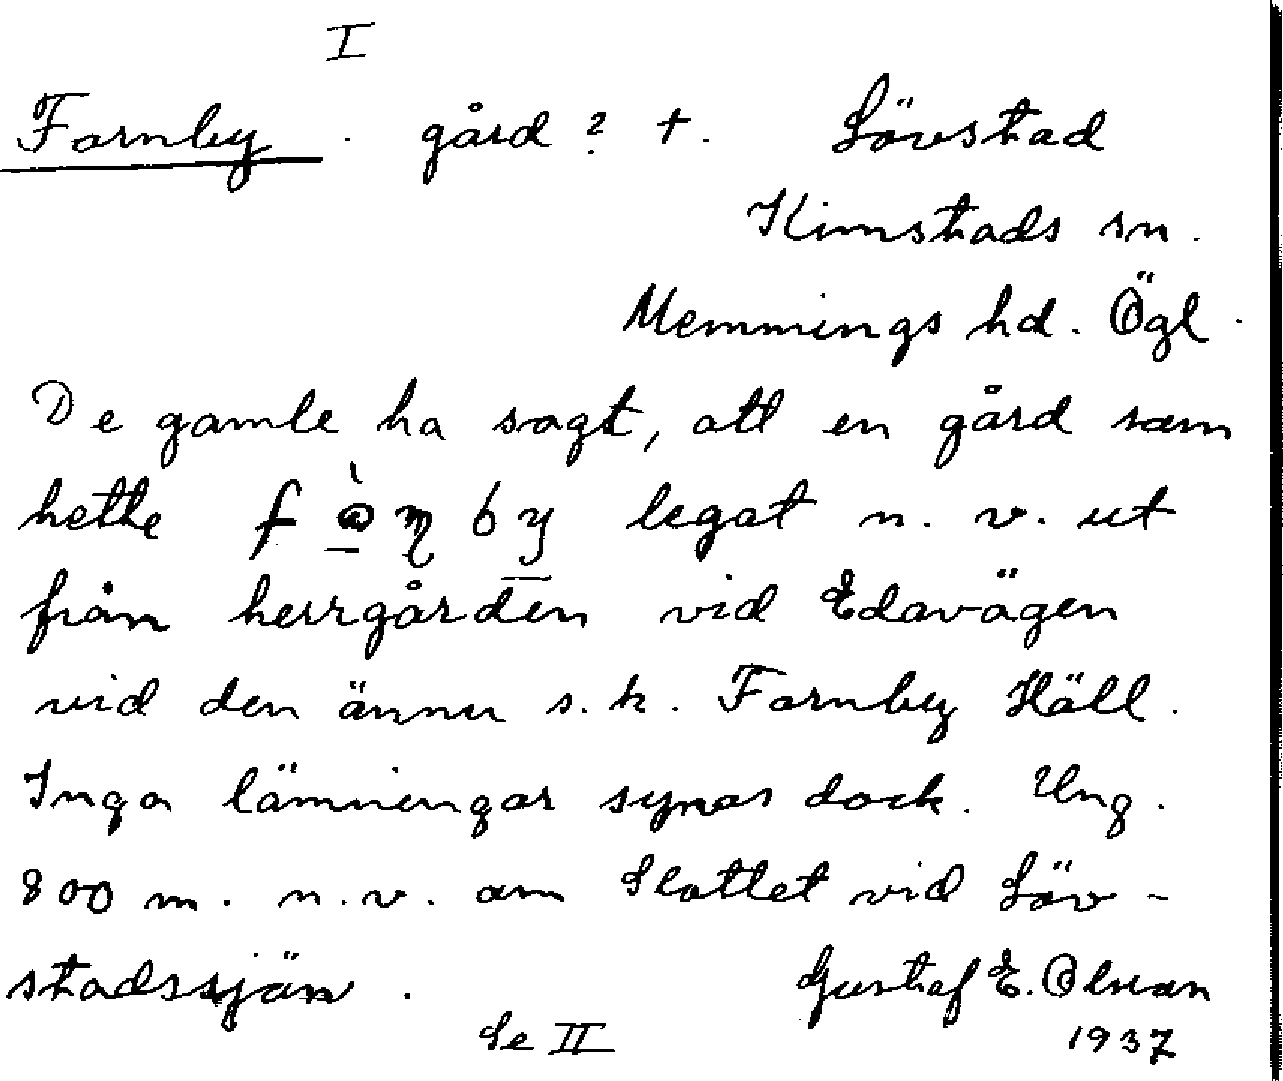 I
Farnby . gård ? +. Lövstad
Kimstads sn.
Memmings hd. Ögl.
De gamle ha sagt, att en gård som
hette legat n. v. ut
från herrgården vid Edavägen
vid den ännu s. k. Farnby Häll.
Inga lämningar synas dock. Ung.
800 m. n. v. om Slottet vid Löv-
stadssjön .
Gustaf E. Olsson
Se II
1937